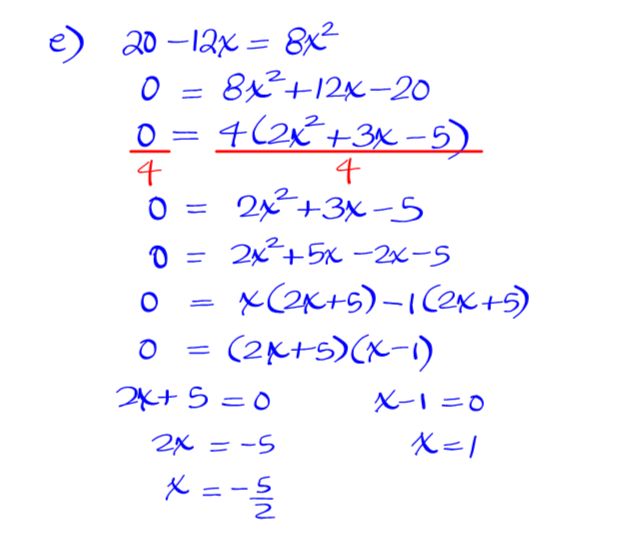 e) 20 - 12x = 8x²
0 = 8x² + 12x - 20
0/4 = 4(2x² + 3x - 5)/4
0 = 2x² + 3x - 5
0 = 2x² + 5x - 2x - 5
0 = x(2x+5) - 1(2x+5)
0 = (2x+5)(x-1)
2x + 5 = 0 x - 1 = 0
2x = -5 x = 1
x = -5/2